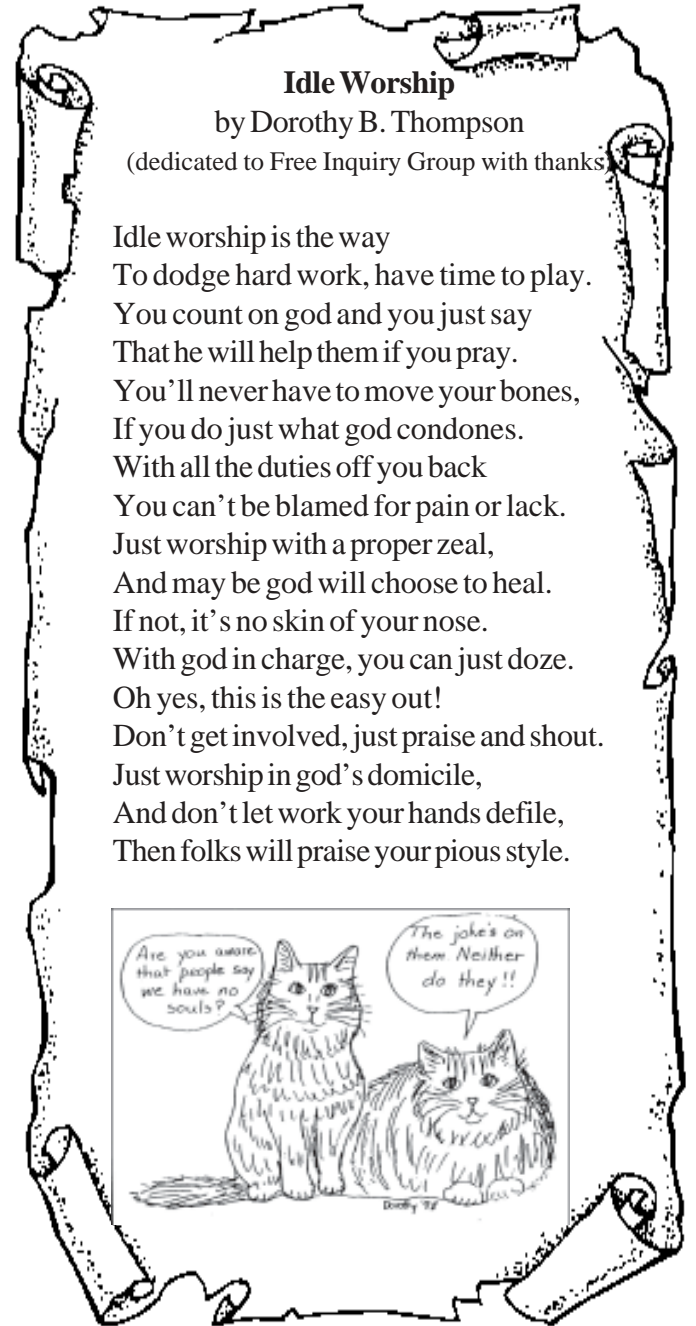 Idle Worship
by Dorothy B. Thompson
(dedicated to Free Inquiry Group with thanks)
Idle worship is the way
To dodge hard work, have time to play.
You count on god and you just say
That he will help them if you pray.
You’ll never have to move your bones,
If you do just what god condones.
With all the duties off you back
You can’t be blamed for pain or lack.
Just worship with a proper zeal,
And may be god will choose to heal.
If not, it’s no skin of your nose.
With god in charge, you can just doze.
Oh yes, this is the easy out!
Don’t get involved, just praise and shout.
Just worship in god’s domicile,
And don’t let work your hands defile,
Then folks will praise your pious style.
Are you aware
that people say
we have no
souls?
The joke's on
them. Neither
do they!!
Dorothy '98